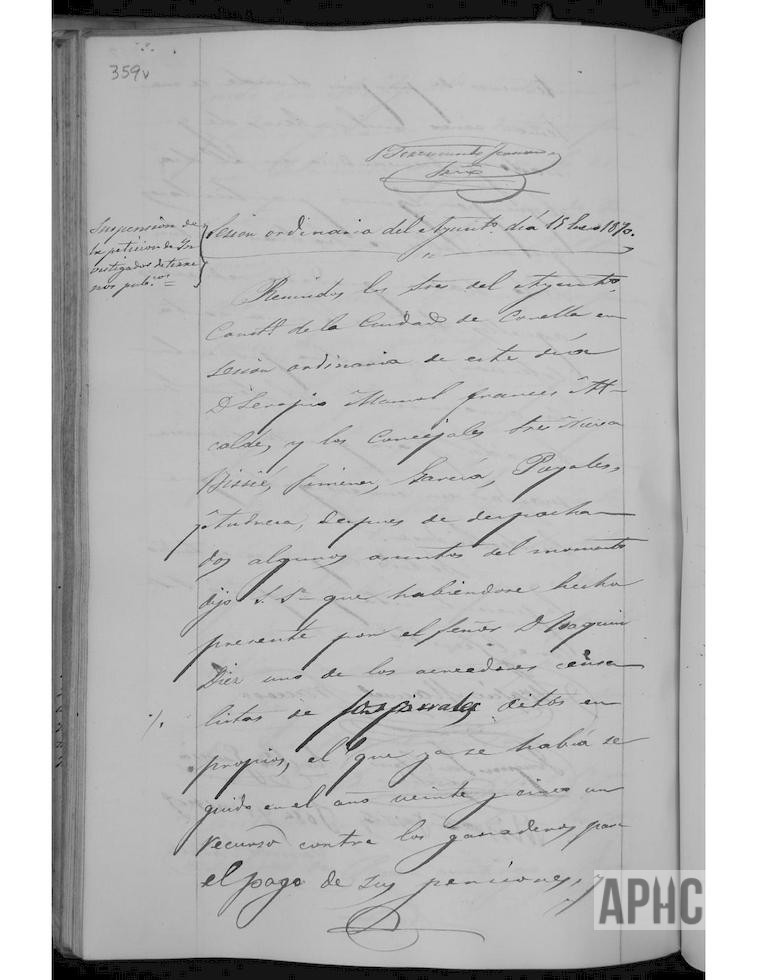 359v
Suspensión de
la petición de In
vestigador de terre
nos pub.cos =
Sesion ordinaria del Ayunt.o día 15 En.o 1870.
Reunidos los Sres del Ayunt.o
Const.l de la Ciudad de Corella en
sesion ordinaria de este día
D Serapio Manuel frances Al-
calde, y los Concejales Sres
Jimenez, García, Poyales,
despues de despacha-
dos algunos asuntos del momento
dijo S. Sa que habiendose hecho
presente por el Señor D Joaquin
Diez uno de los acreedores censa
listas de ditos en
propios, el que ya se había se
guido en el año veinte y cinco un
recurso contra los ganaderos para
el pago de sus pensiones, y
APHC